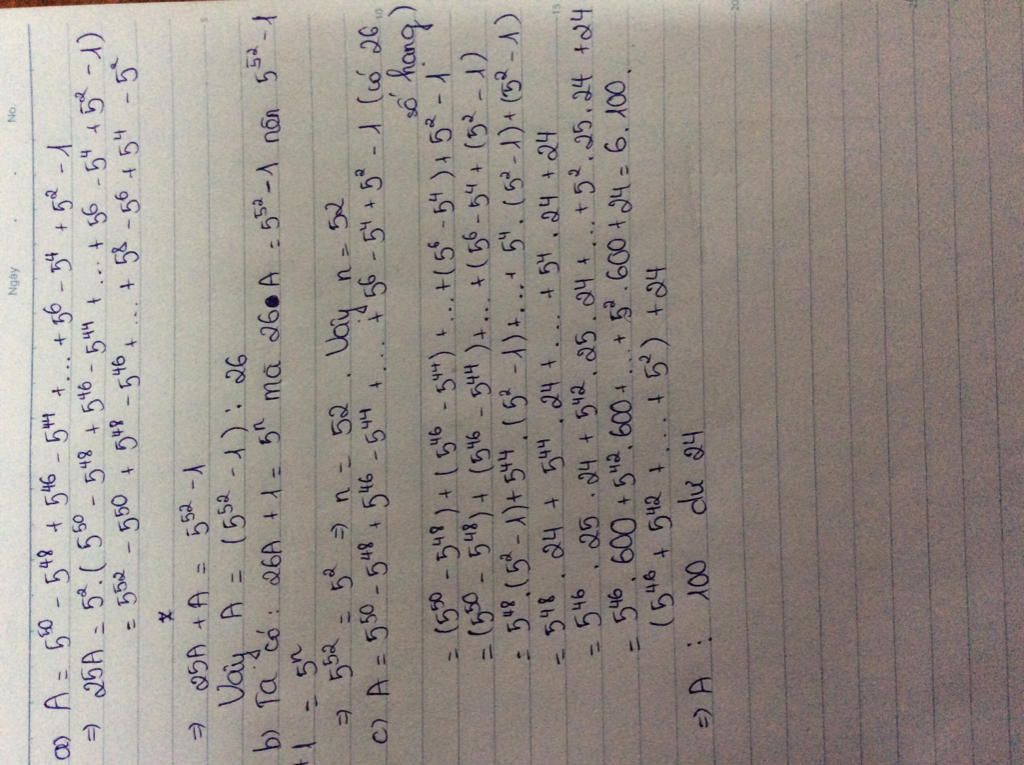 Ngày . . No.
a) A = 5⁵⁰ - 5⁴⁸ + 5⁴⁶ - 5⁴⁴ + ... + 5⁶ - 5⁴ + 5² - 1
⇒ 25A = 5². (5⁵⁰ - 5⁴⁸ + 5⁴⁶ - 5⁴⁴ + ... + 5⁶ - 5⁴ + 5² - 1)
= 5⁵² - 5⁵⁰ + 5⁴⁸ - 5⁴⁶ + ... + 5⁸ - 5⁶ + 5⁴ - 5²
⇒ 25A + A = 5⁵² - 1
Vậy A = (5⁵² - 1) : 26
b) Ta có : 26A + 1 = 5ⁿ mà 26 A = 5⁵² - 1 nên 5⁵² - 1
+1 = 5ⁿ
⇒ 5⁵² = 5² ⇒ n = 52 . Vậy n = 52
c) A = 5⁵⁰ - 5⁴⁸ + 5⁴⁶ - 5⁴⁴ + ... + 5⁶ - 5⁴ + 5² - 1 (có 26
số hạng)
= (5⁵⁰ - 5⁴⁸) + (5⁴⁶ - 5⁴⁴) + ... + (5⁶ - 5⁴) + 5² - 1
= (5⁵⁰ - 5⁴⁸) + (5⁴⁶ - 5⁴⁴) + ... + (5⁶ - 5⁴ + (5² - 1)
= 5⁴⁸. (5² - 1) + 5⁴⁴. (5² - 1) + ... + 5⁴. (5² - 1) + (5² - 1)
= 5⁴⁸ . 24 + 5⁴⁴ . 24 + ... + 5⁴ . 24 + 24
= 5⁴⁶ . 25 . 24 + 5⁴² . 25 . 24 + ... + 5² . 25 . 24 + 24
= 5⁴⁶. 600 + 5⁴². 600 + ... + 5². 600 + 24 = 6 . 100 .
(5⁴⁶ + 5⁴² + ... + 5²) + 24
⇒ A : 100 dư 24